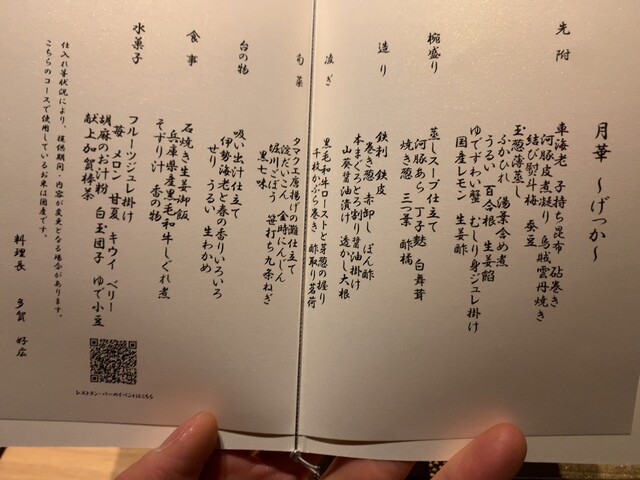 月華 ～げっか～
先附
車海老 子持ち昆布 砧巻き
河豚皮煮凝り 烏賊雲丹焼き
結び熨斗梅 蚕豆
玉葱薄蒸し
ふかひれ 湯葉含め煮
うるい 百合根 生姜餡
ゆでずわい蟹 むしり身ジュレ掛け
国産レモン 生姜酢
椀盛り
蒸しスープ仕立て
河豚あら 丁子麩 白舞茸
焼き葱 三つ葉 酢橘
造り
鉄刺 鉄皮
巻き葱 赤卸し ぽん酢
本まぐろとろ割り醤油掛け
山葵醤油漬け 透かし大根
凌ぎ
黒毛和牛ローストと芽葱の握り
千枚かぶら巻き 酢取り茗荷
旬菜
タマク工房揚げ 灘仕立て
淀だいこん 金時にんじん
堀川ごぼう 笹打ち九条ねぎ
黒七味
台の物
吸い出汁仕立て
伊勢海老と春の香りいろいろ
せり うるい 生わかめ
食事
石焼き生姜御飯
兵庫県産黒毛和牛しぐれ煮
そずり汁 香の物
水菓子
フルーツジュレ掛け
苺 メロン 甘夏 キウイ ベリー
胡麻のお汁粉 白玉団子 ゆで小豆
献上加賀棒茶
仕入れ等状況により、提供期間・内容が変更となる場合があります。
こちらのコースで使用しているお米は国産です。
料理長 多賀 好広
レストラン・バーのイベントはこちら